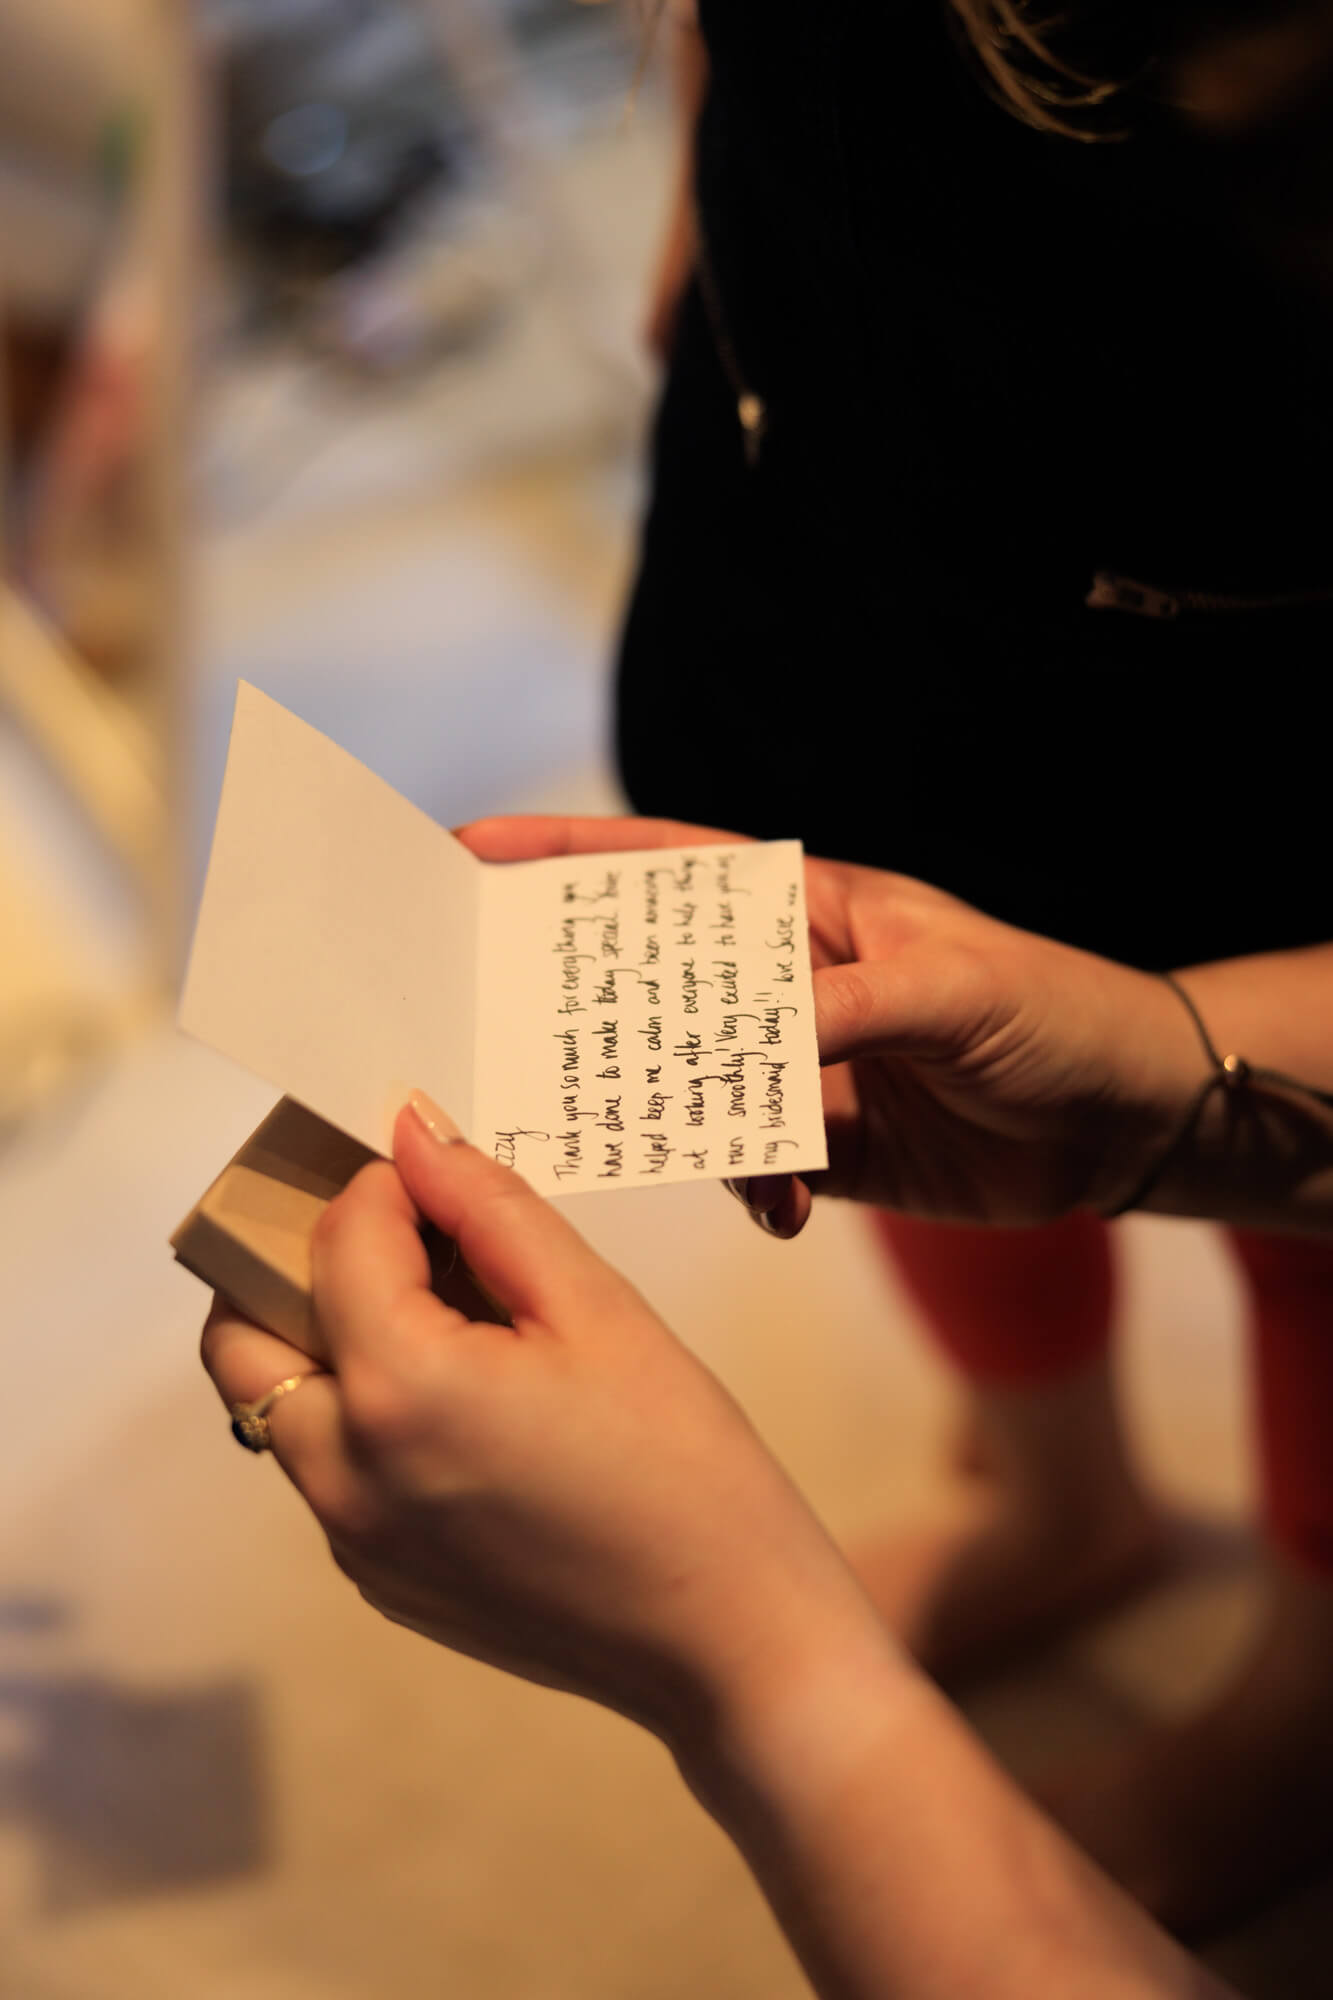 zzy
Thank you so much for everything you
have done to make today special. You've
helped keep me calm and been amazing
at looking after everyone to help things
run smoothly! Very excited to have you as
my bridesmaid today!! love Susie xxx